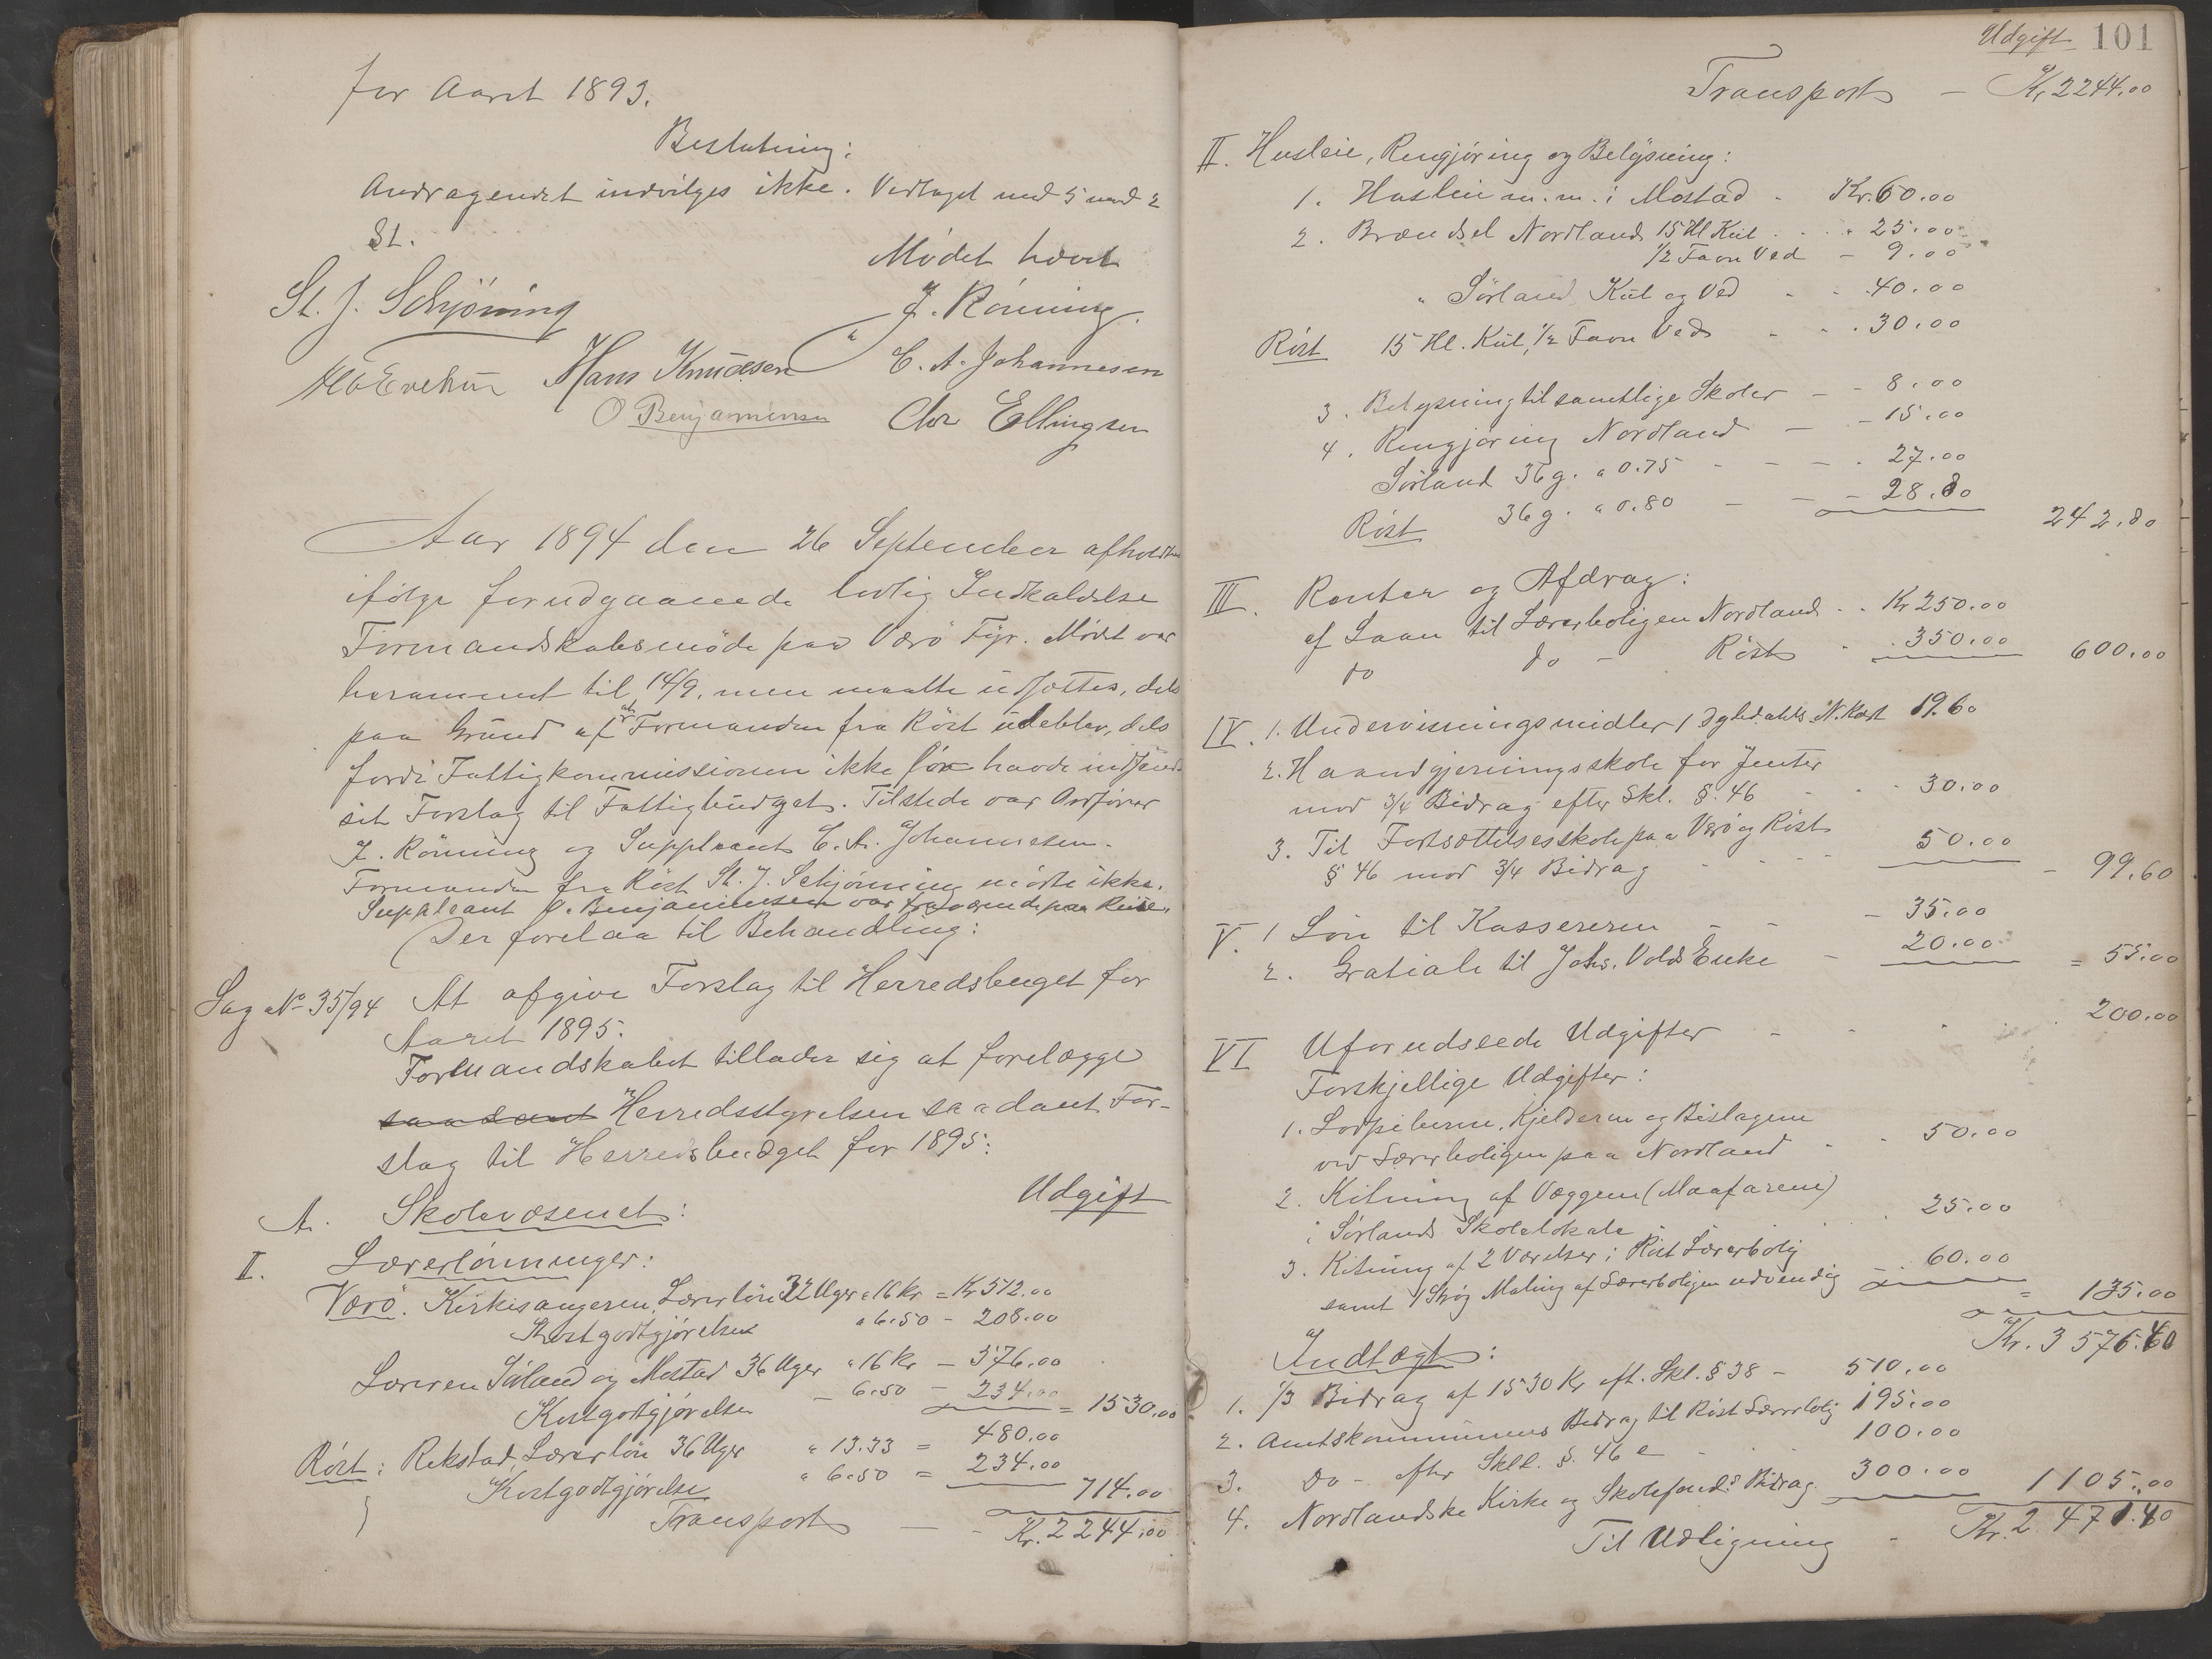 for Aaret 1893.
Beslutning:
Andragendet indvilges ikke. Vedtaget med 5 mod 2
St.
Mødet hævet
St. J. Schjönning
J. Rönning.
Hans Knudsen
C. A. Johannesen
O Benjaminsen Chr Ellingsen
Aar 1894 den 26 September afholdtes
ifölge forudgaaende lovlig Indkaldelse
Formandskabsmöde paa Værö Fyr. Mödet var
berammet til 14/9, men maatte udsættes, dels
paa Grund af at Formanden fra Röst udeblev, dels
fordi Fattigkommissionen ikke för havde indsendt
sit Forslag til Fattigbudget. Tilstede var Ordförer
J. Rönning og Suppleant C. A. Johannesen.
Formanden fra Röst St. J. Schjönning mödte ikke.
Suppleant O. Benjaminsen var fraværende paa Reise.
Der forelaa til Behandling:
Sag No 35/94 At afgive Forslag til Herredsbuget for
Aaret 1895.
Formandskabet tillader sig at forelægge
saadant Herredsstyrelsen saadant For-
slag til Herredsbudget for 1895:
Udgift
A. Skolevæsenet:
I. Lærerlönninger:
Værö. Kirkesangeren, Lærerlön 32 Uger a 16 kr = Kr 512.00
Kostgodtgjörelse a 6.50 - 208.00
Læreren Sörland og Mostad 36 Uger a 16 Kr - 576.00
Kostgodtgjörelse - 6.50 - 234.00 = 1530.00
Röst: Rekstad, Lærerlön 36 Uger a 13.33 = 480.00
Kostgodtgjörelse a 6.50 = 234.00 714.00
Transport - Kr. 2244.00
Udgift 101
Transport - Kr 2244.00
II. Husleie, Rengjöring og Belysning:
1. Husleie m. m. i Mostad - Kr. 60.00
2. Brændsel Nordland 15 Hl Kul - 25.00
1/2 Favn Ved - 9.00
" Sörland Kul og Ved - 40.00
Röst 15 Hl. Kul, 1/2 Favn Ved - 30.00
3. Belysning til samtlige Skoler - 8.00
4. Rengjöring Nordland - 15.00
Sörland 36 g. a 0.75 - 27.00
Röst 36 g. a 0.80 - 28.80 242.80
III. Renter og Afdrag:
af Laan til Lærerboligen Nordland - Kr 250.00
do do - Röst - 350.00 600.00
IV. 1. Undervisningsmidler 19.60
2. Haandgjerningsskole for Jenter
mod 3/4 Bidrag efter Skl. §. 46 - 30.00
3. Til Fortsættelsesskole paa Værö og Röst
§ 46 mod 3/4 Bidrag - 50.00 - 99.60
V. 1 Lön til Kassereren - 35.00
2. Gratiale til Johs. Volds Enke - 20.00 = 55.00
VI Uforudseede Udgifter - 200.00
Forskjellige Udgifter:
1. Lodpiberne, Kjelderen og Bislagene
ved Lærerboligen paa Nordland - 50.00
2. Kitning af Væggene
i Sörlands Skolelokale - 25.00
3. Kitning af 2 Værelser i Röst Lærerbolig
samt 1 Strög Maling af Lærerboligen udvendig - 60.00 = 135.00
Kr. 3576.40
Indtægt:
1. 1/3 Bidrag af 1530 Kr eft. Skl. § 38 - 510.00
2. Amtskommunens Bidrag til Röst Lærerbolig 195.00
3. Do - efter Skll. §. 46 e - 100.00
4. Nordlandske Kirke og Skolefonds Bidrag 300.00 1105.00
Til Udligning - Kr. 2471.40